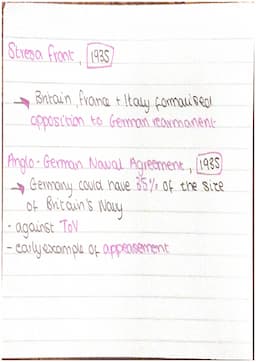 Stresa Front, 1935
→ Britain, France + Italy formalised
opposition to German rearmament
Anglo-German Naval Agreement, 1935
→ Germany could have 35% of the size
of Britain's Navy
- against ToV
- early example of appeasement